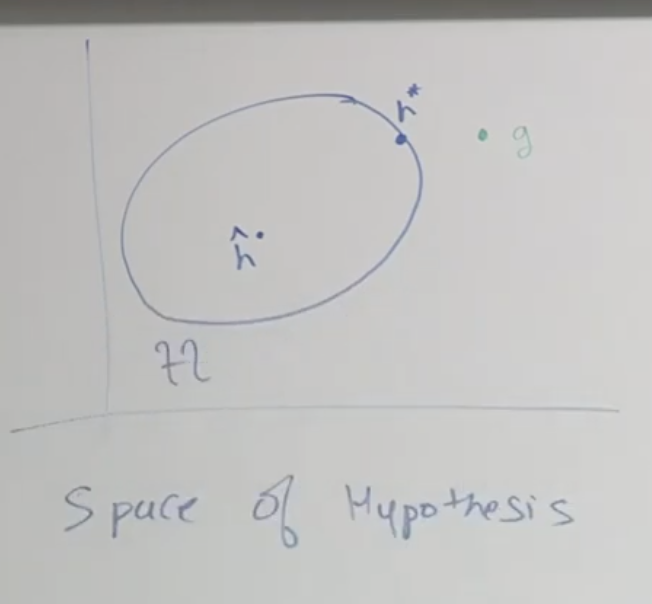 h*
g
ĥ
H
Space of Hypothesis